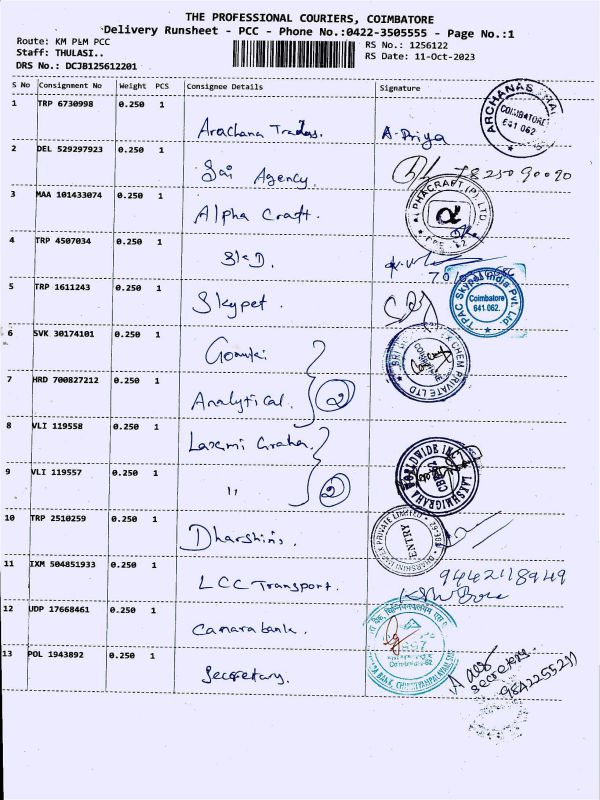 THE PROFESSIONAL COURIERS, COIMBATORE
Delivery Runsheet - PCC - Phone No.:0422-3505555 - Page No.:1
Route: KM PLM PCC
RS No.: 1256122
Staff: THULASI..
RS Date: 11-Oct-2023
DRS No.: DCJB125612201
S No Consignment No Weight PCS Consignee Details Signature
1 TRP 6730998 0.250 1
Arachana Trades. A. Priya
ARCHANAS
COIMBATORE
641 062
2 DEL 529297923 0.250 1
Sai Agency.
3 MAA 101433074 0.250 1
Alpha Craft.
ALPHACRAFT (P) LTD.
α
4 TRP 4507034 0.250 1
5 TRP 1611243 0.250 1
Skypet.
TPAC Skypet India Pvt. Ltd.
Coimbatore
641 062.
6 SVK 30174101 0.250 1
7 HRD 700827212 0.250 1
Analytical. 2
CHEM PRIVATE LTD
8 VLI 119558 0.250 1
Laxmi Graha.
9 VLI 119557 0.250 1
" 2
LAKSHMIGRAHA WORLDWIDE INC
10 TRP 2510259 0.250 1
Dharshinis.
DHARSHINI IMPEX PRIVATE LIMITED
ENTRY
11 IXM 504851933 0.250 1
LCC Transport. 9442118949
12 UDP 17668461 0.250 1
Canara bank.
Coimbatore-62
13 POL 1943892 0.250 1
Secretary.
secretary.
9842255211